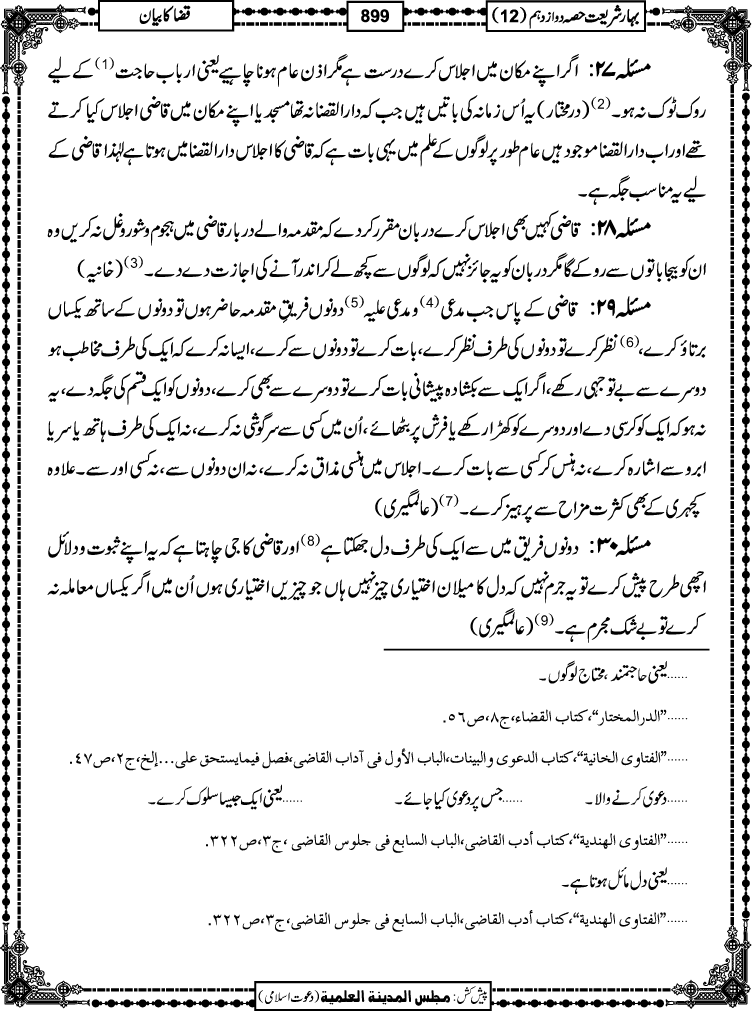 بہار شریعت حصہ دوازدہم (12)
899
قضا کا بیان
مسئلہ ۲۷: اگر اپنے مکان میں اجلاس کرے درست ہے مگر اذن عام ہونا چاہیے یعنی ارباب حاجت (1) کے لیے
روک ٹوک نہ ہو۔(2) (درمختار) یہ اُس زمانہ کی باتیں ہیں جب کہ دارالقضانہ تھا مسجد یا اپنے مکان میں قاضی اجلاس کیا کرتے
تھے اور اب دارالقضا موجود ہیں عام طور پر لوگوں کے علم میں یہی بات ہے کہ قاضی کا اجلاس دارالقضا میں ہوتا ہے لہٰذا قاضی کے
لیے یہ مناسب جگہ ہے۔
مسئلہ ۲۸: قاضی کہیں بھی اجلاس کرے دربان مقرر کر دے کہ مقدمہ والے دربار قاضی میں ہجوم و شور و غل نہ کریں وہ
ان کو بیجا باتوں سے روکے گا مگر دربان کو یہ جائز نہیں کہ لوگوں سے کچھ لے کر اندر آنے کی اجازت دے دے۔(3) (خانیہ)
مسئلہ ۲۹: قاضی کے پاس جب مدعی (4) و مدعی علیہ (5) دونوں فریقِ مقدمہ حاضر ہوں تو دونوں کے ساتھ یکساں
برتاؤ کرے،(6) نظر کرے تو دونوں کی طرف نظر کرے، بات کرے تو دونوں سے کرے، ایسا نہ کرے کہ ایک کی طرف مخاطب ہو
دوسرے سے بے توجہی رکھے، اگر ایک سے بکشادہ پیشانی بات کرے تو دوسرے سے بھی کرے، دونوں کو ایک قسم کی جگہ دے، یہ
نہ ہو کہ ایک کو کرسی دے اور دوسرے کو کھڑا رکھے یا فرش پر بٹھائے، اُن میں کسی سے سرگوشی نہ کرے، نہ ایک کی طرف ہاتھ یا سر یا
ابرو سے اشارہ کرے، نہ ہنس کر کسی سے بات کرے۔ اجلاس میں ہنسی مذاق نہ کرے، نہ ان دونوں سے، نہ کسی اور سے۔ علاوہ
کچہری کے بھی کثرت مزاح سے پرہیز کرے۔(7) (عالمگیری)
مسئلہ ۳۰: دونوں فریق میں سے ایک کی طرف دل جھکتا ہے (8) اور قاضی کا جی چاہتا ہے کہ یہ اپنے ثبوت و دلائل
اچھی طرح پیش کرے تو یہ جرم نہیں کہ دل کا میلان اختیاری چیز نہیں ہاں جو چیزیں اختیاری ہوں اُن میں اگر یکساں معاملہ نہ
کرے تو بے شک مجرم ہے۔(9) (عالمگیری)
......یعنی حاجتمند، محتاج لوگوں۔
......"الدر المختار"،کتاب القضاء،ج۸،ص۵۶.
......"الفتاوی الخانیة"،کتاب الدعوی والبینات،الباب الأول فی آداب القاضی،فصل فیمایستحق علی...إلخ،ج۲،ص۴۷.
......دعوی کرنے والا۔ ......جس پر دعوی کیا جائے۔ ......یعنی ایک جیسا سلوک کرے۔
......"الفتاوی الهندیة"،کتاب أدب القاضی،الباب السابع فی جلوس القاضی،ج۳،ص۳۲۲.
......یعنی دل مائل ہوتا ہے۔
......"الفتاوی الهندیة"،کتاب أدب القاضی،الباب السابع فی جلوس القاضی،ج۳،ص۳۲۲.
پیش کش: مجلس المدینة العلمیة (دعوت اسلامی)